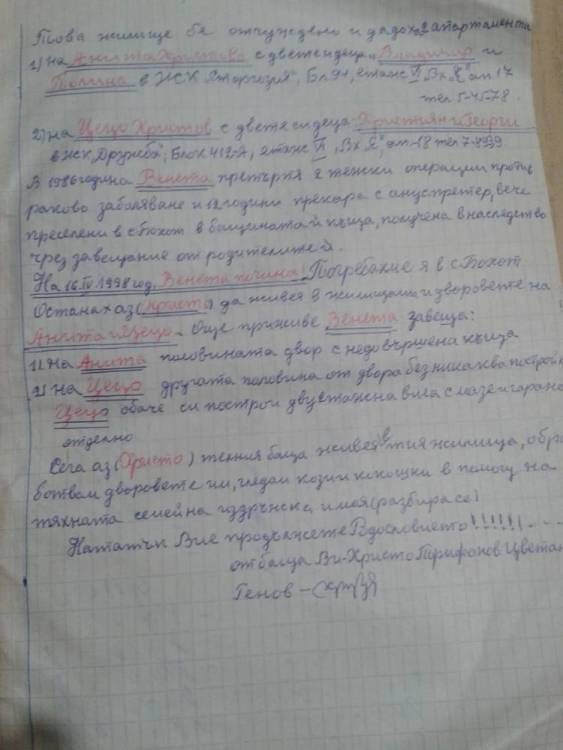 Това жилище бе отчуждено и дадоха 2 апартамента
1) на Анита Христова с двете си деца - Владимир и
Полина в ЖСК "Моргозия", Бл 94, етаж VI, Вх "Б" ап 17
тел 5-45-78.
2) на Цецо Христов с двете си деца - Християн и Георги
в жск "Дружба", Блок 412-А, етаж VI, Вх "Б", ап-18 тел 7-8939
В 1986 година Венета претърпя 2 тежки операции против
раково заболяване и 12 години прекара с анус претер, вече
преселени в с Бохот в бащината ѝ къща, получена в наследство
чрез завещание от родителите ѝ.
На 16.IV 1998 год. Венета почина! Погребахме я в с Бохот
Останах аз (Христо) да живея в жилищата и дворовете на
Анита и Цецо. Още приживе Венета завеща:
1) На Анита половината двор с недовършена къща
2) на Цецо другата половина от двора без никаква постройка
Цецо обаче си построи двуетажна вила с мазе и гараж
отделно
Сега аз (Христо) техния баща живея в тия жилища, обра-
ботвам дворовете им, гледам кози и кокошки в помощ на
тяхната семейна издръжка, и моя (разбира се)
Нататък Вие продължете Родословието!!!!!!...
от баща Ви - Христо Трифонов Цветан
Генов -